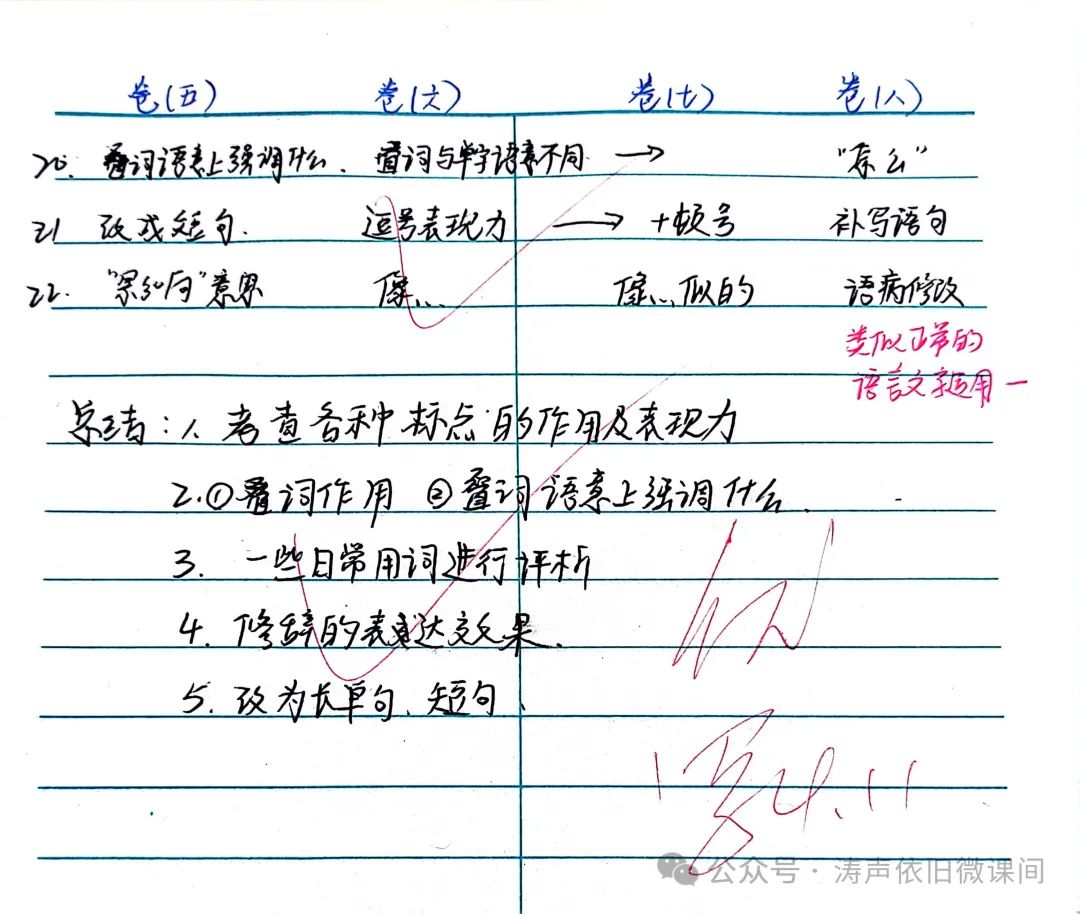 卷(五) 卷(六) 卷(七) 卷(八)
20. 叠词语意上强调什么. 叠词与单字语意不同 → "怎么"
21 改成短句. 逗号表现力 → +顿号 补写语句
22. 意思 像… 像…似的 语病修改
类似正常的
语言文字运用一
总结：1. 考查各种标点的作用及表现力
2.①叠词作用 ②叠词语意上强调什么.
3. 一些日常用词进行评析
4. 修辞的表达效果.
5. 改为长单句、短句.
4.11
公众号·涛声依旧微课间